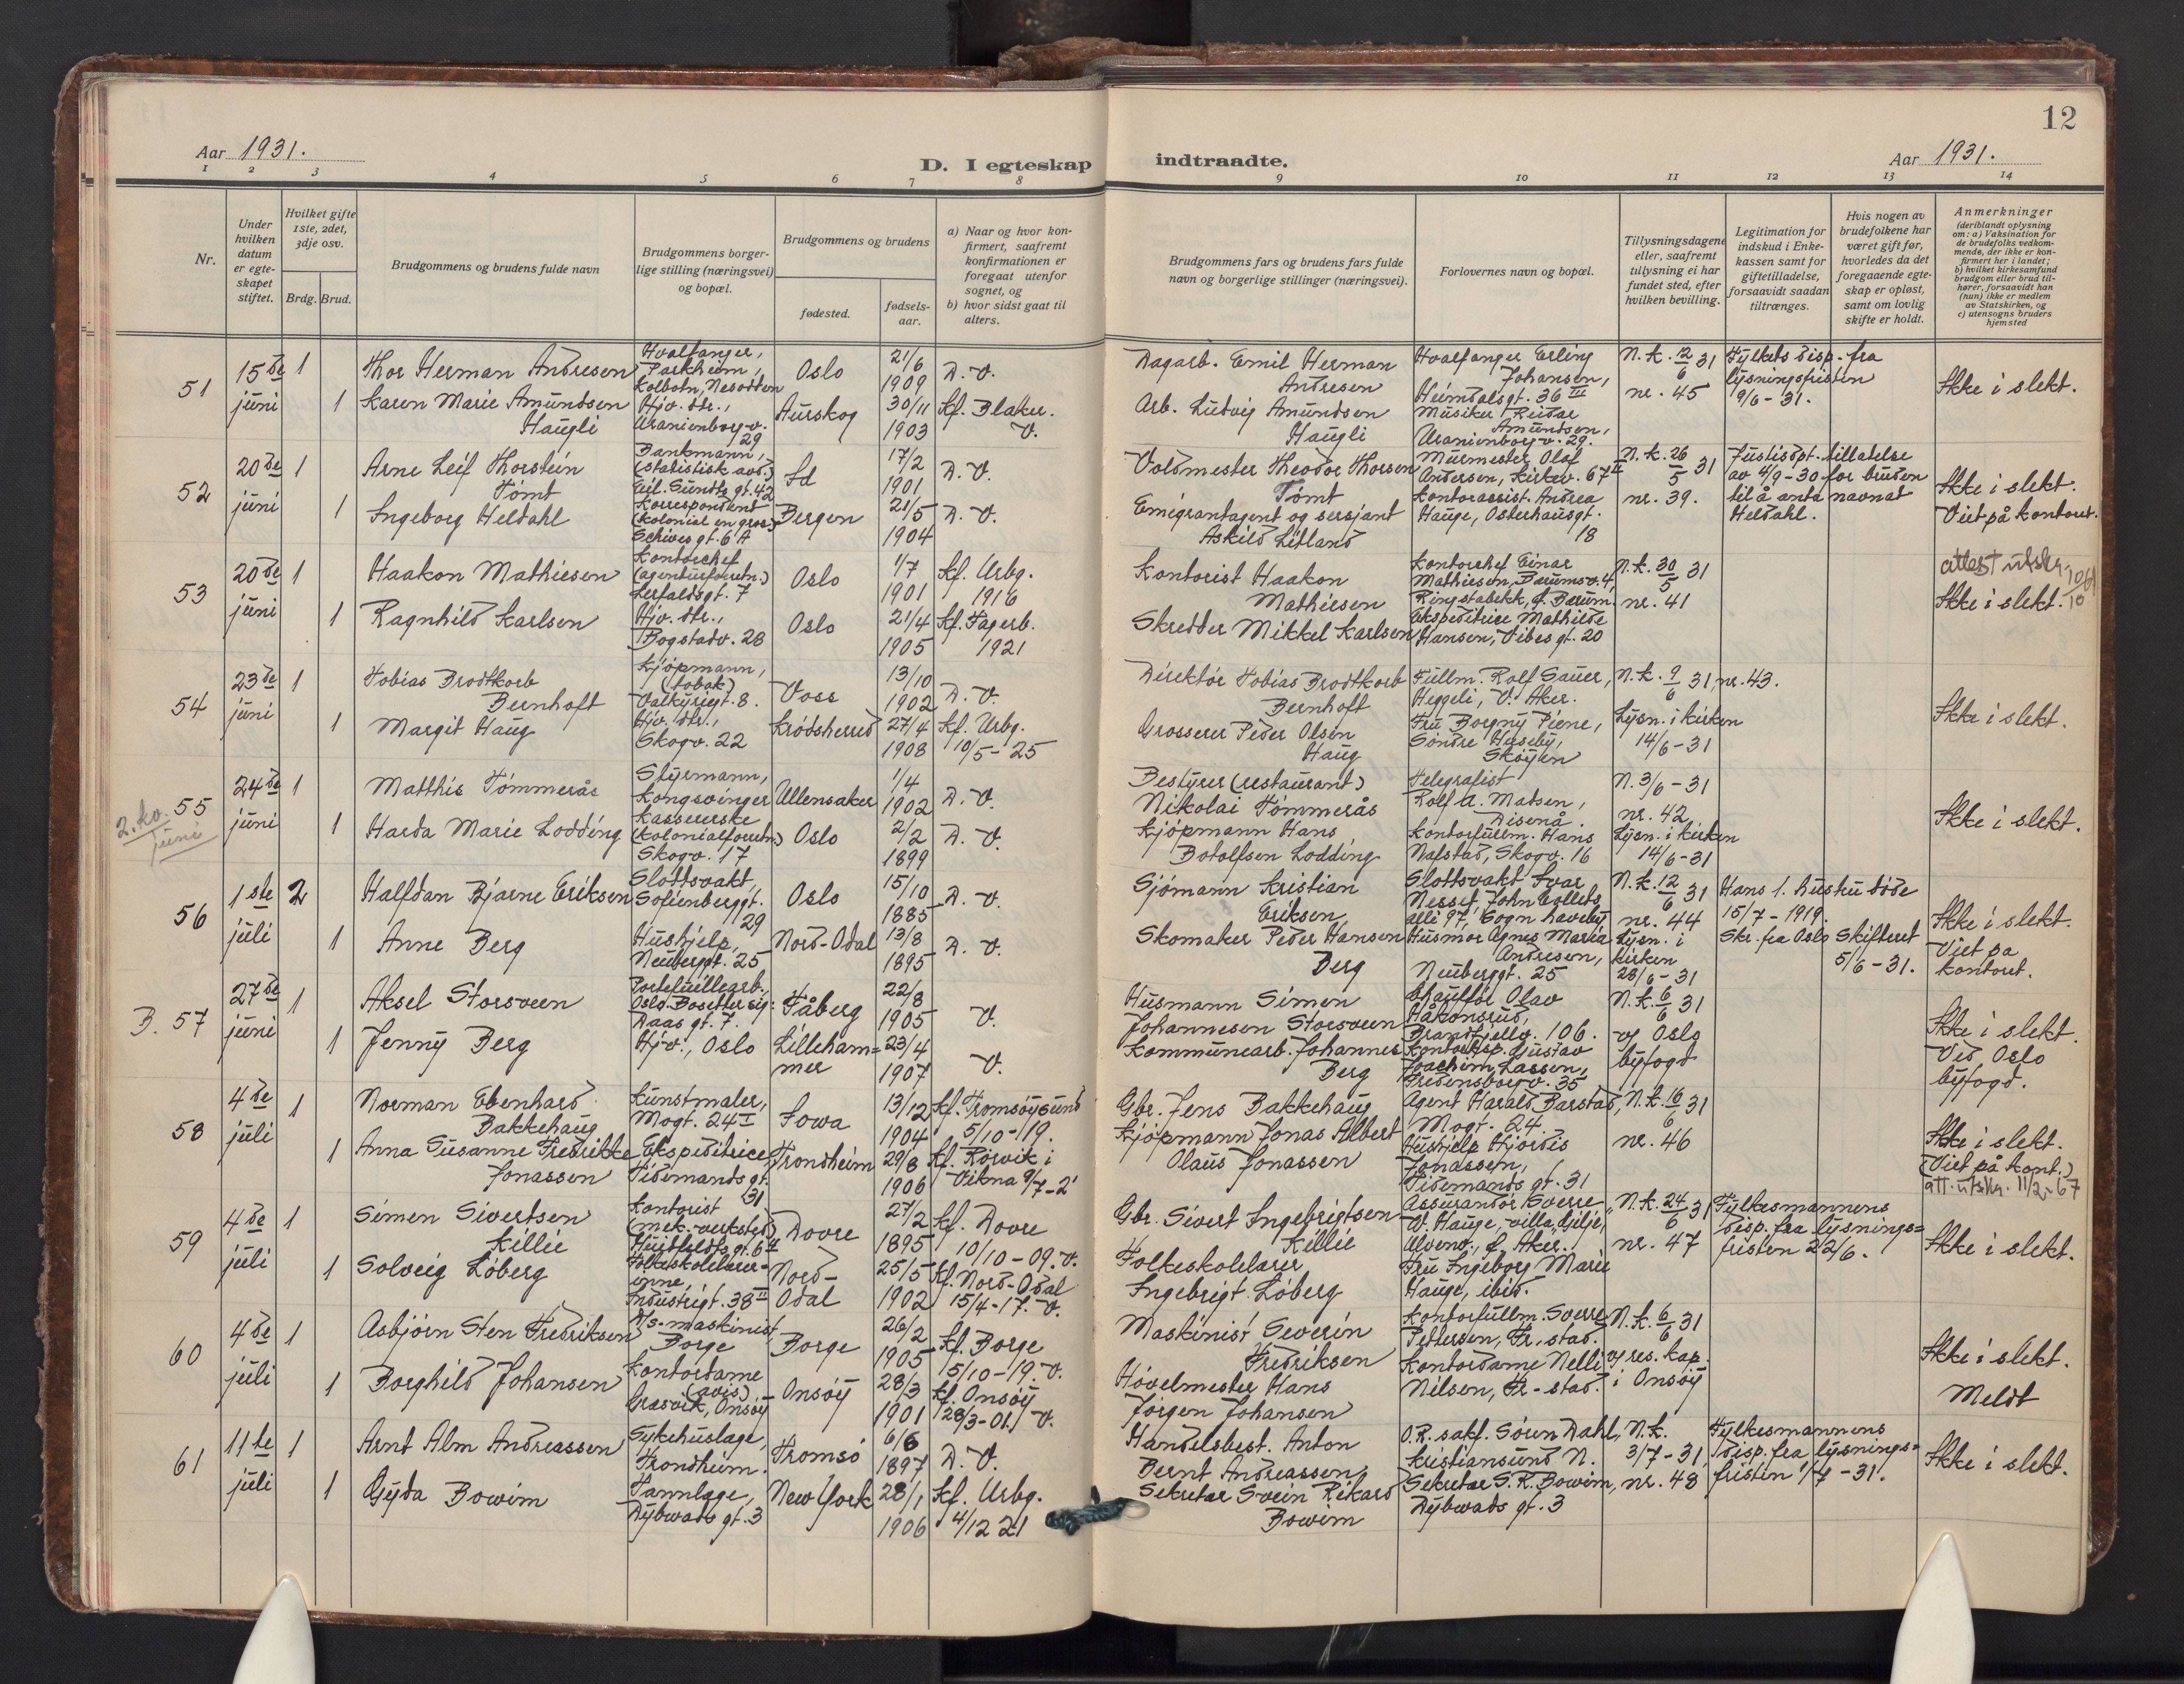 12
Aar 1931.
D. I egteskap indtraadte.
Aar 1931.
1 2 3 4 5 6 7 8 9 10 11 12 13 14
Nr.
Under hvilken datum er egteskapet stiftet.
Hvilket gifte 1ste, 2det, 3dje osv.
Brdg. Brud.
Brudgommens og brudens fulde navn
Brudgommens borgerlige stilling (næringsvei) og bopæl.
Brudgommens og brudens
fødested.
fødselsaar.
a) Naar og hvor konfirmert, saafremt konfirmationen er foregaat utenfor sognet, og
b) hvor sidst gaat til alters.
Brudgommens fars og brudens fars fulde navn og borgerlige stillinger (næringsvei).
Forlovernes navn og bopæl.
Tillysningsdagene eller, saafremt tillysning ei har fundet sted, efter hvilken bevilling.
Legitimation for indskud i Enkekassen samt for giftetilladelse, forsaavidt saadan tiltrænges.
Hvis nogen av brudefolkene har været gift før, hvorledes da det foregaaende egteskap er opløst, samt om lovlig skifte er holdt.
Anmerkninger (deriblandt oplysning om: a) Vaksination for de brudefolks vedkommende, der ikke er konfirmert her i landet; b) hvilket kirkesamfund brudgom eller brud tilhører, forsaavidt han (hun) ikke er medlem av Statskirken, og c) utensogns bruders hjemsted
51 15de juni 1 Thor Herman Andresen Hvalfanger, Parkheim, Kolbotn, Nesodden Oslo 21/6 1909 D. V. Dagarb. Emil Herman Andresen Hvalfanger Erling Johansen, Heimdalsgt. 36 III N.k. 12/6 31 nr. 45 Fylkets disp. fra lysningsfristen 9/6-31. Ikke i slekt.
1 Karen Marie Amundsen Haugli Hjv. dtr., Uranienborg-v. 29 Aurskog 30/11 1903 Kf. Blaker. V. Arb. Ludvig Amundsen Haugli Musiker Reidar Amundsen, Uranienborg-v. 29.
52 20de juni 1 Arne Leif Thorstein Tømt Bankmann, (statistisk avd.) Eil. Sundts gt. 42 Sd 17/2 1901 D. V. Voldmester Theodor Thorsen Tømt Murmester Olaf Andersen, Kirkev. 67 II N.k. 26/5 31 nr. 39. Justisdpt. tillatelse av 4/9-30 for bruden til å anta navnet Heldahl. Ikke i slekt. Viet på kontoret.
1 Ingeborg Heldahl Korrespondent (kolonial en gros) Schives gt. 6 A Bergen 21/5 1904 D. V. Emigrantagent og sersjant Askild Litland Kontorassist. Andrea Hauge, Osterhausgt. 18
53 20de juni 1 Haakon Mathiesen Kontorchef (agenturforretn.) Lerfaldsgt. 7 Oslo 1/7 1901 Kf. Urbg. 1916 Kontorist Haakon Mathiesen Kontorchef Einar Mathiesen, Bærumsv. 4, Ringstabekk, f. Bærum. N.k. 30/5 31 nr. 41 attest utskr. Ikke i slekt.
1 Ragnhild Karlsen Hjv. dtr., Bogstadv. 28 Oslo 21/4 1905 Kf. Fagerb. 1921 Skredder Mikkel Karlsen Ekspeditrice Mathilde Hansen, Vibes gt. 20
54 23de juni 1 Tobias Brodtkorb Bernhoft Kjøpmann, (tobak) Valkyriegt. 8. Voss 13/10 1902 D. V. Direktør Tobias Brodtkorb Bernhoft Fullm. Rolf Sauer, Heggeli, V. Aker. N.k. 9/6 31, nr. 43. Lysn. i kirken 14/6-31 Ikke i slekt.
1 Margit Haug Hjv. dtr., Skogv. 22 Krødsherred 27/4 1908 Kf. Urbg. 10/5-25 Grosserer Peder Olsen Haug Fru Borgny Piene, Søndre Huseby, Skøyen
2. kv. juni
55 24de juni 1 Matthis Tømmerås Styrmann, Kongsvinger Ullensaker 1/4 1902 D. V. Bestyrer (restaurant) Nikolai Tømmerås Telegrafist Rolf A. Matsen, Disenå. N. 3/6-31 nr. 42 Lysn. i kirken 14/6-31 Ikke i slekt.
1 Harda Marie Lodding Kassererske (kolonialforretn.) Skogv. 17 Oslo 2/2 1899 D. V. Kjøpmann Hans Botolfsen Lodding Kontorfullm. Hans Nafstad, Skogv. 16
56 1ste juli 2 Halfdan Bjarne Eriksen Slottsvakt, Sofienberggt. 29 Oslo 15/10 1885 D. V. Sjømann Kristian Eriksen Slottsvakt Ivar Nesset, John Collets allé 97, Sogn haveby N.k. 12/6 31 nr. 44 Lysn. i kirken 28/6-31 Hans 1. hustru døde 15/7-1919. Skr. fra Oslo Skifteret 5/6-31. Ikke i slekt. Viet på kontoret.
1 Anne Berg Hushjelp, Neuberggt. 25 Nord-Odal 13/8 1895 D. V. Skomaker Peder Hansen Berg Husmor Agnes Maria Andresen, Neuberggt. 25
B. 57 27de juni 1 Aksel Storsveen Portefeuillearb., Oslo. Bosetter sig: Daas gt. 7. Fåberg 22/8 1905 V. Husmann Simen Johannesen Storsveen Chauffør Olav Håkonsrud, Brandfjellv. 106. N.k. 6/6 31 v/ Oslo byfogd Ikke i slekt. Ved Oslo byfogd.
1 Jenny Berg Hjv., Oslo Lillehammer 23/4 1907 V. Kommunearb. Johannes Berg Kontorchsp. Gustav Joachim Lassen, Fredensborgv. 35
58 4de juli 1 Norman Ebenhard Bakkehaug Kunstmaler, Mogt. 24 I Iowa 13/12 1904 Kf. Tromsøysund 5/10-19. Gbr. Jens Bakkehaug Agent Harald Barstad, Mogt. 24. N.k. 16/6 31 nr. 46 Ikke i slekt. (Viet på kont.) att. utskr. 11/2-67
1 Anna Susanne Fredrikke Jonassen Ekspeditrice Tidemands gt. 31 Trondheim 29/8 1906 Kf. Rørvik i Vikna 9/7-2 Kjøpmann Jonas Albert Olaus Jonassen Hushjelp Hjørdis Jonassen, Tidemands gt. 31
59 4de juli 1 Simen Sivertsen Killie Kontorist (mek. verksted) Huitfeldts gt. 6 Dovre 27/2 1895 Kf. Dovre 10/10-09. V. Gbr. Sivert Ingebrigtsen Killie Assurandør Sverre W. Hauge, villa "Gilje", Ulvenv., f. Aker. N.k. 24/6 31 nr. 47 Fylkesmannens disp. fra lysningsfristen 22/6. Ikke i slekt.
1 Solveig Løberg Folkeskolelærerinne, Industrigt. 38 II Nord-Odal 25/5 1902 Kf. Nord-Odal 15/4-17. V. Folkeskolelærer Ingebrigt Løberg Fru Ingeborg Marie Hauge, ibid.
60 4de juli 1 Asbjørn Sten Fredriksen D/s-maskinist, Borge Borge 26/2 1905 Kf. Borge 5/10-19. V. Maskinist Severin Fredriksen Kontorfullm. Sverre Pettersen, Fr.stad. N.k. 6/6 31 v/ res. kap. i Onsøy Ikke i slekt. Meldt
1 Borghild Johansen Kontordame (avis) Gresvik, Onsøy Onsøy 28/3 1901 Kf. Onsøy 28/3-01. V. Høvelmester Hans Jørgen Johansen Kontordame Nelli Nilsen, Fr-stad.
61 11te juli 1 Arnt Alm Andreassen Sykehuslæge, Trondheim. Tromsø 6/6 1897 D. V. Handelsbest. Anton Bernt Andreassen O.R. sakf. Søren Dahl, Kristiansund N. N.k. 3/7-31, nr. 48 Fylkesmannens disp. fra lysningsfristen 1/7-31. Ikke i slekt.
1 Gyda Bowim Tannlæge, Dybwads gt. 3 New York 28/1 1906 Kf. Urbg. 4/12 21 Sekretær Svein Rikard Bowim Sekretær S. R. Bowim, Dybwads gt. 3